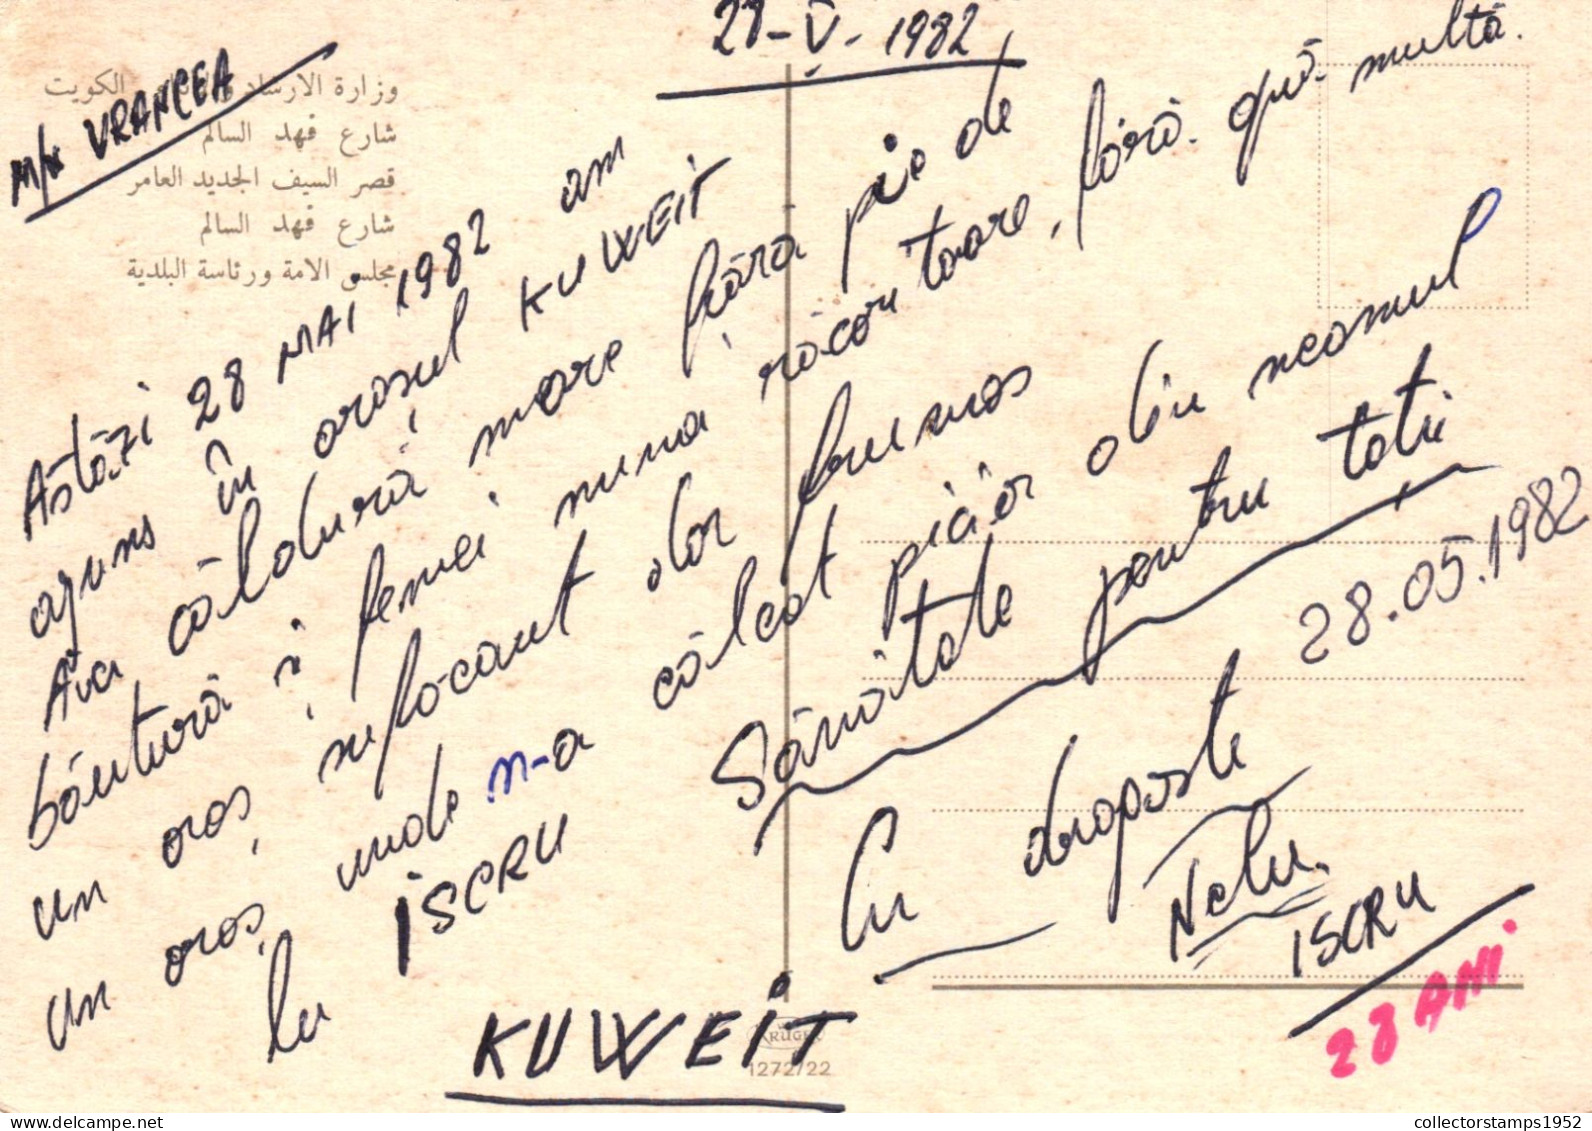 28-V-1982
M/N VRANCEA
وزارة الارشاد الكويت
شارع فهد السالم
قصر السيف الجديد العامر
شارع فهد السالم
مجلس الامة ورئاسة البلدية
Astăzi 28 MAI 1982 am
ajuns în orașul KUWEIT
Aici căldură mare fără pic de
băutură și femei numa răcoritoare, fără multă.
un oraș sufocant dor frumos
un oraș unde n-a călcat picior din neamul
lu ISCRU
Sănătate pentru toți
28.05.1982
Cu dragoste
Nelu.
ISCRU
28 ANI.
KUWEIT
KRÜGER
1272/22
collectorstamps1952